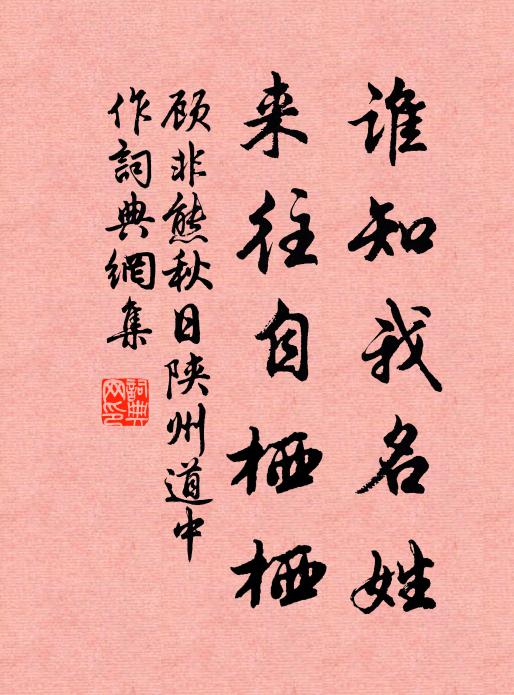 谁知我名姓
来往自栖栖
顾非熊秋日陕州道中
作詞典網集
詞典
网印